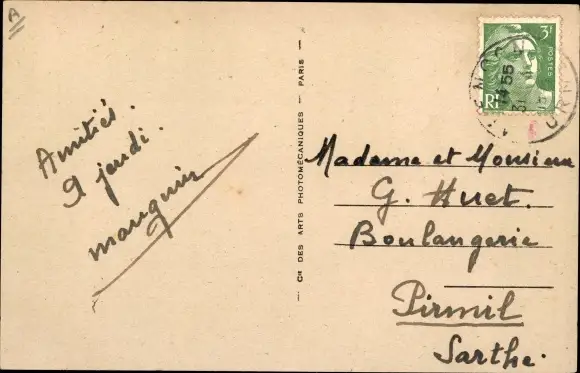 A
Amitiés.
A jeudi.
mauguin
Cie DES ARTS PHOTOMÉCANIQUES - PARIS -
3F
POSTES
RF
Madame et Monsieur
G. Huet.
Boulangerie
Pirmil
Sarthe.